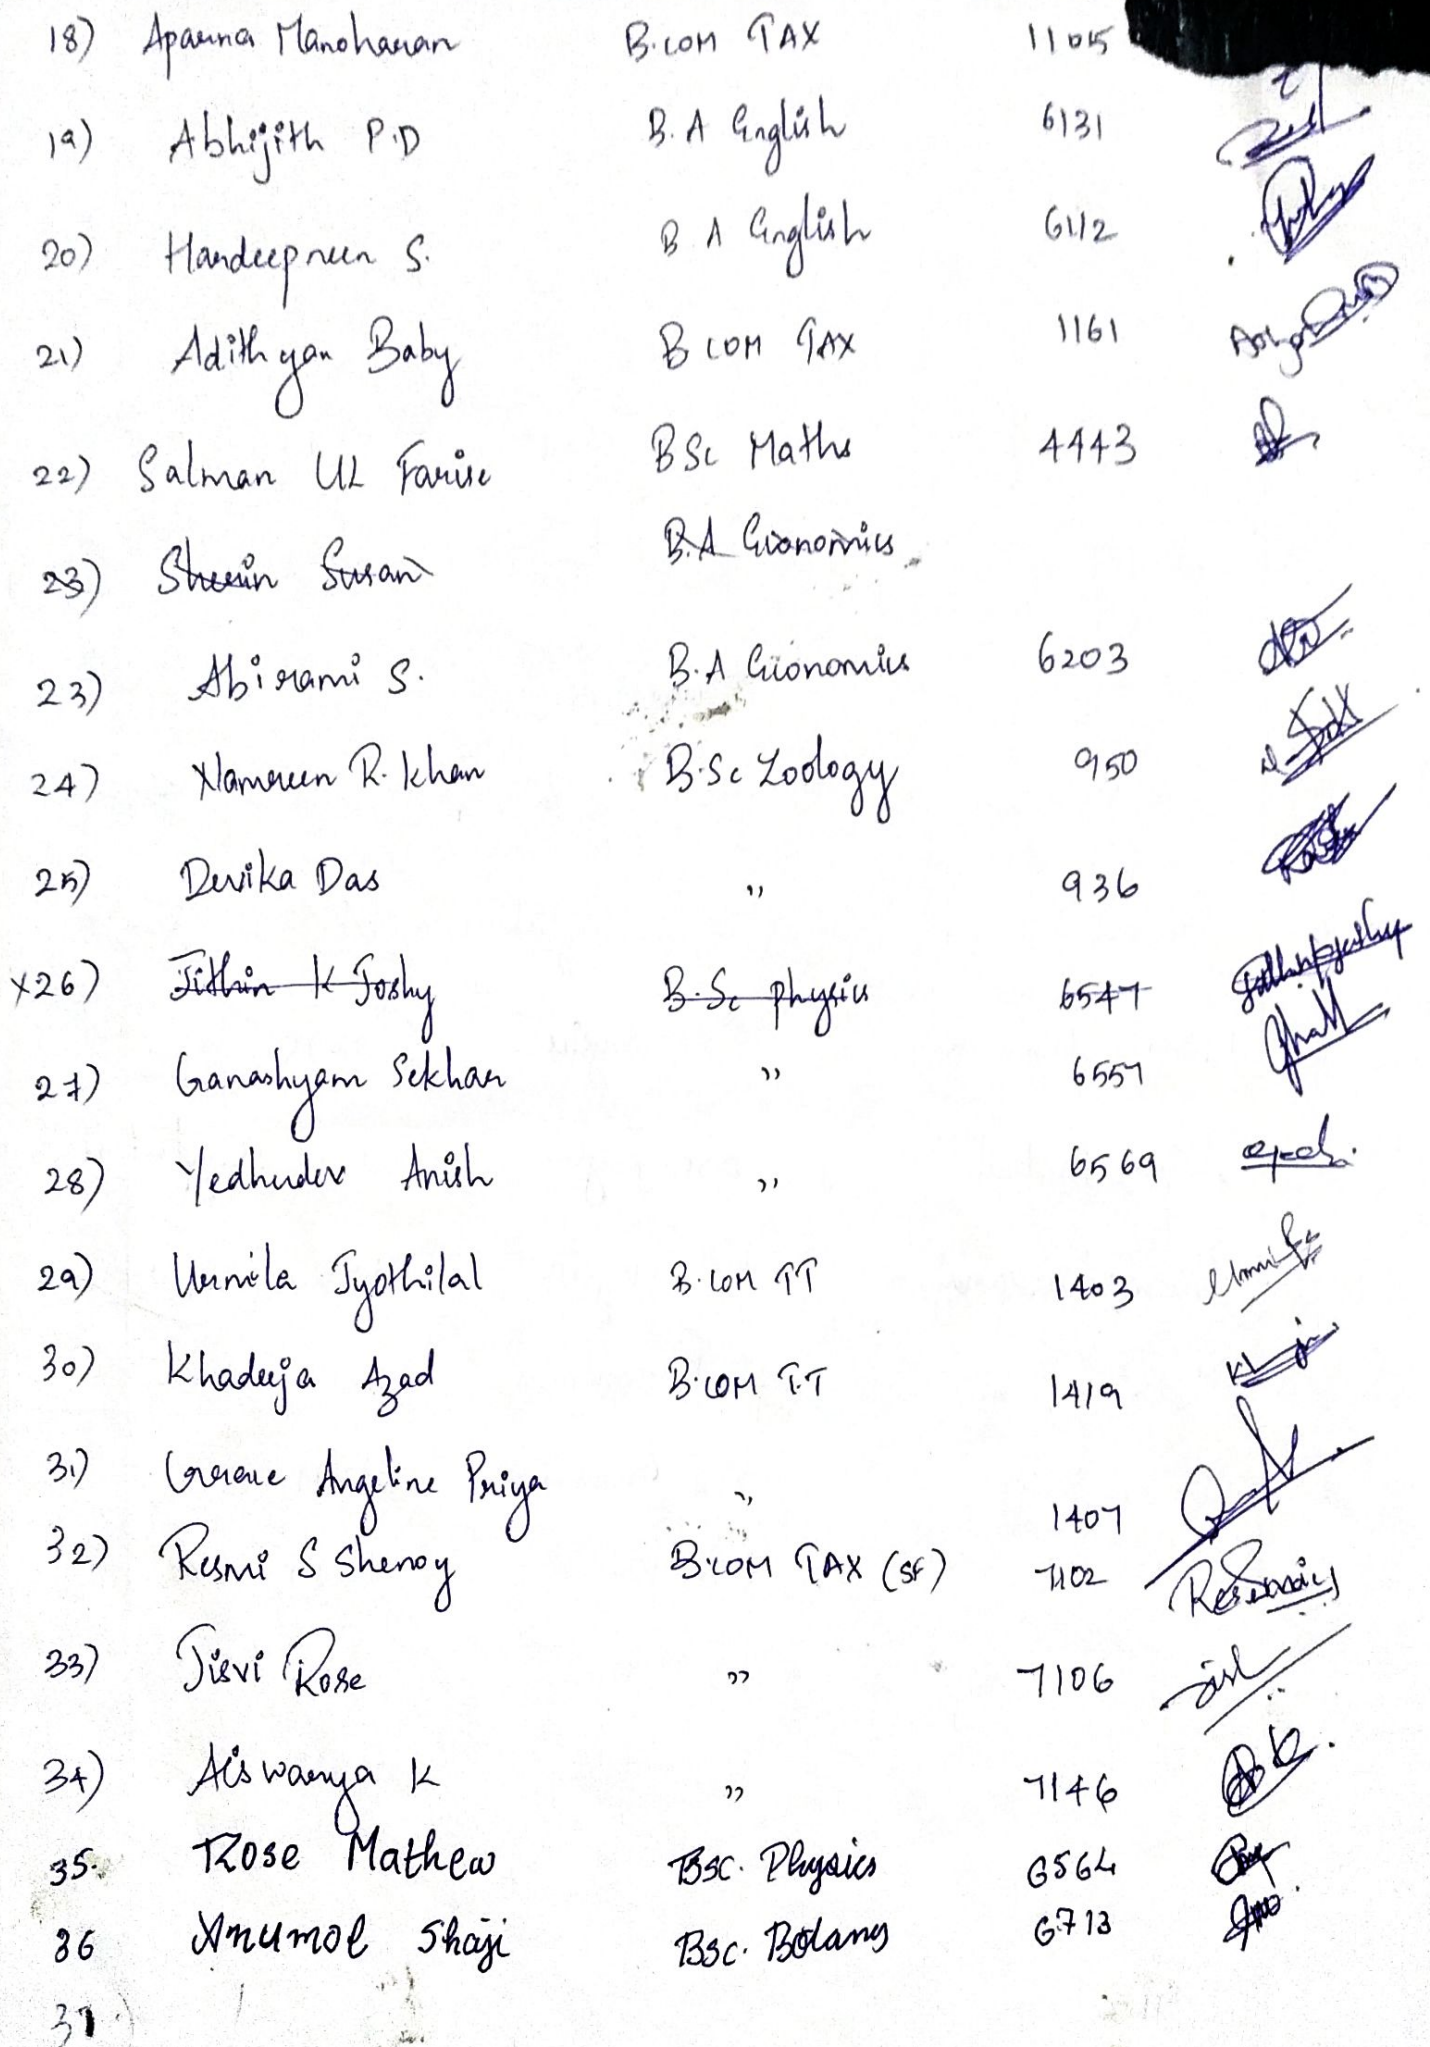 18) Aparna Manoharan B.COM TAX 1105
19) Abhijith P.D B.A English 6131
20) Hardeepreen S. B A English 6112
21) Adithyan Baby B COM TAX 1161
22) Salman UL Farise BSc Maths 4443
23) Sherin Susan B.A Economics
23) Abirami S. B.A Economics 6203
24) Namreen R. Khan B.Sc Zoology 950
25) Devika Das " 936
x26) Jithin K Joshy B.Sc physics 6547
27) Ganashyam Sekhar " 6557
28) Yedhudev Anish " 6569
29) Urmila Jyothilal B.COM TT 1403
30) Khadeeja Azad B.COM T.T 1419
31) Grace Angeline Priya " 1407
32) Resmi S Shenoy B.COM TAX (SF) 7102
33) Jisvi Rose " 7106
34) Aiswarya K " 7146
35. Rose Mathew BSC. Physics 6564
36 Anumol Shaji BSC. Botany 6713
37